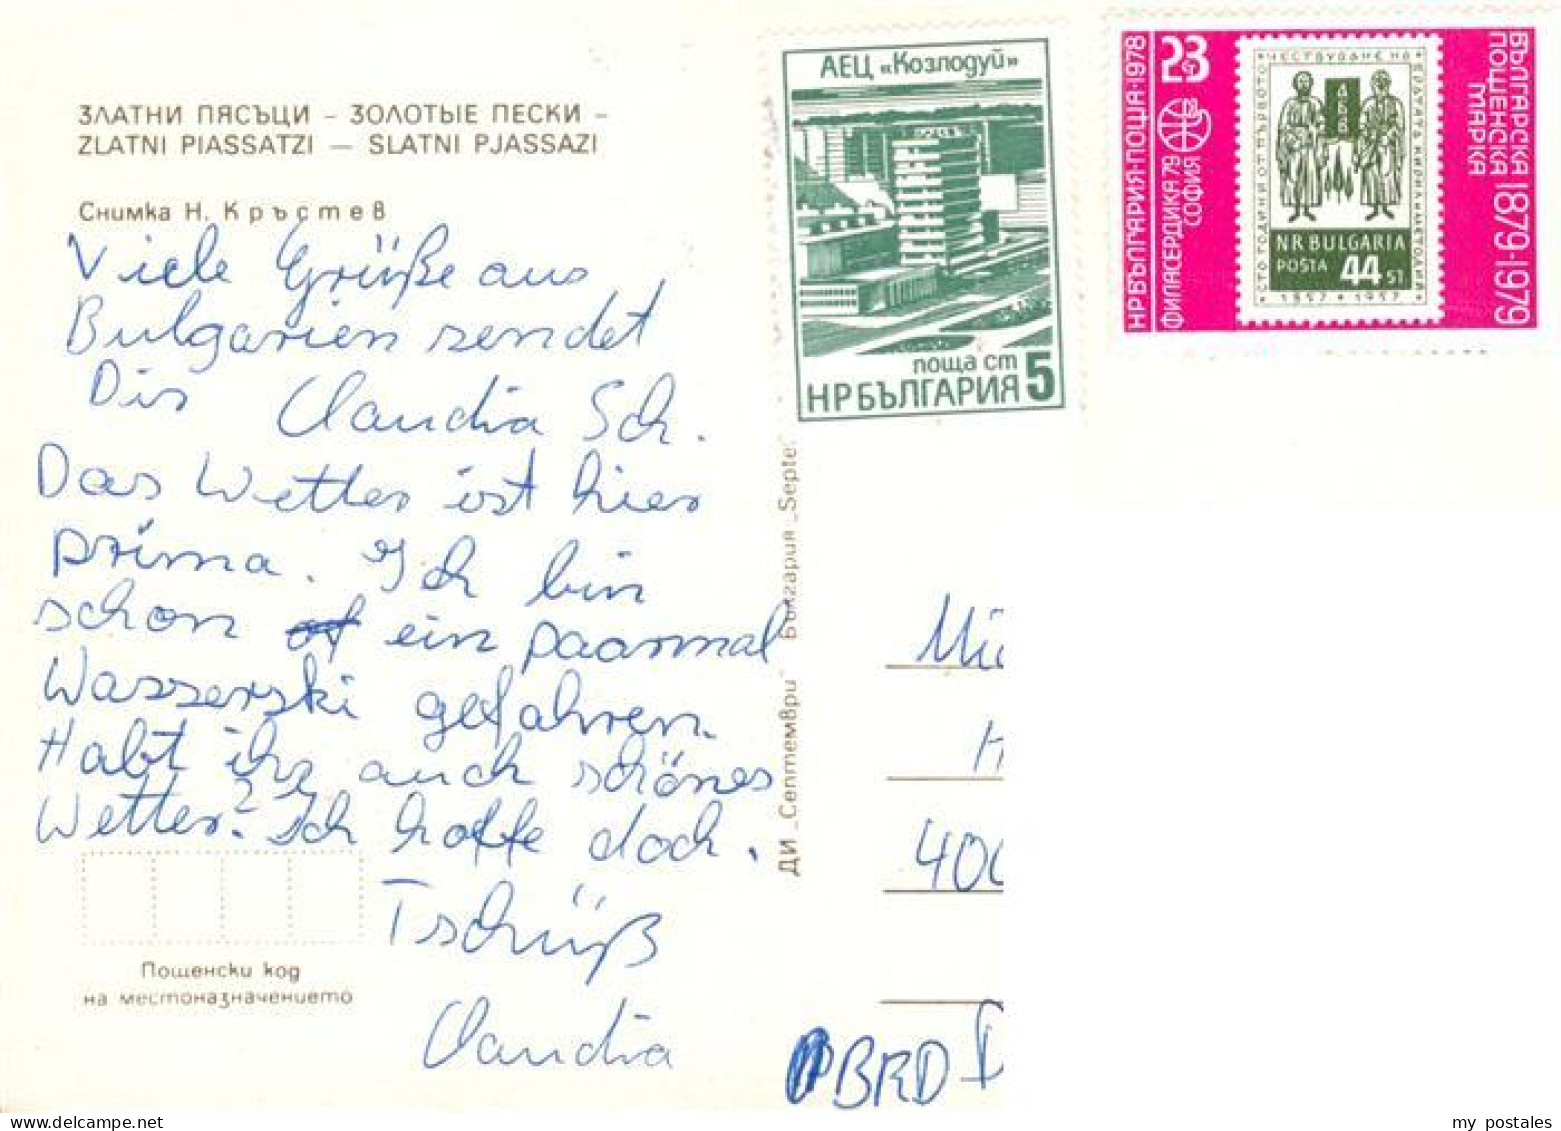 ЗЛАТНИ ПЯСЪЦИ – ЗОЛОТЫЕ ПЕСКИ –
ZLATNI PIASSATZI — SLATNI PJASSAZI
Снимка Н. Кръстев
Viele Grüße aus
Bulgarien sendet
Dir Claudia Sch.
Das Wetter ist hier
prima. Ich bin
schon ein paarmal
Wasserski gefahren.
Habt ihr auch schönes
Wetter? Ich hoffe doch.
Tschüß
Claudia
Пощенски код
на местоназначението
ДИ „Септември" България „Septe
АЕЦ «Козлодуй»
поща ст 5
НРБЪЛГАРИЯ
НРБЪЛГАРИЯ·ПОЩА·1978
ФИЛАСЕРДИКА 79
СОФИЯ
23
СТО ГОДИНИ ОТ ПЪРВОТО
ЧЕСТВУВАНЕ НА
БРАТЯТА КИРИЛ И МЕТОДИЙ
N.R. BULGARIA
POŠTA 44 ST.
1857 • 1957
БЪЛГАРСКА
ПОЩЕНСКА
МАРКА
1879·1979
400
BRD
my postales